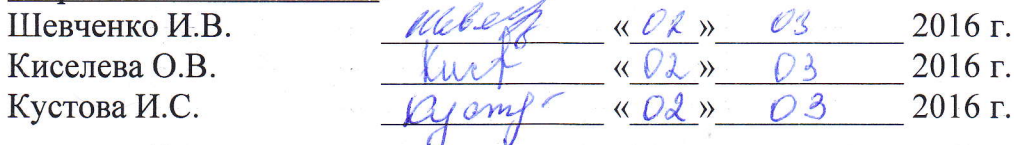 Шевченко И.В. «02» 03 2016 г.
Киселева О.В. «02» 03 2016 г.
Кустова И.С. «02» 03 2016 г.